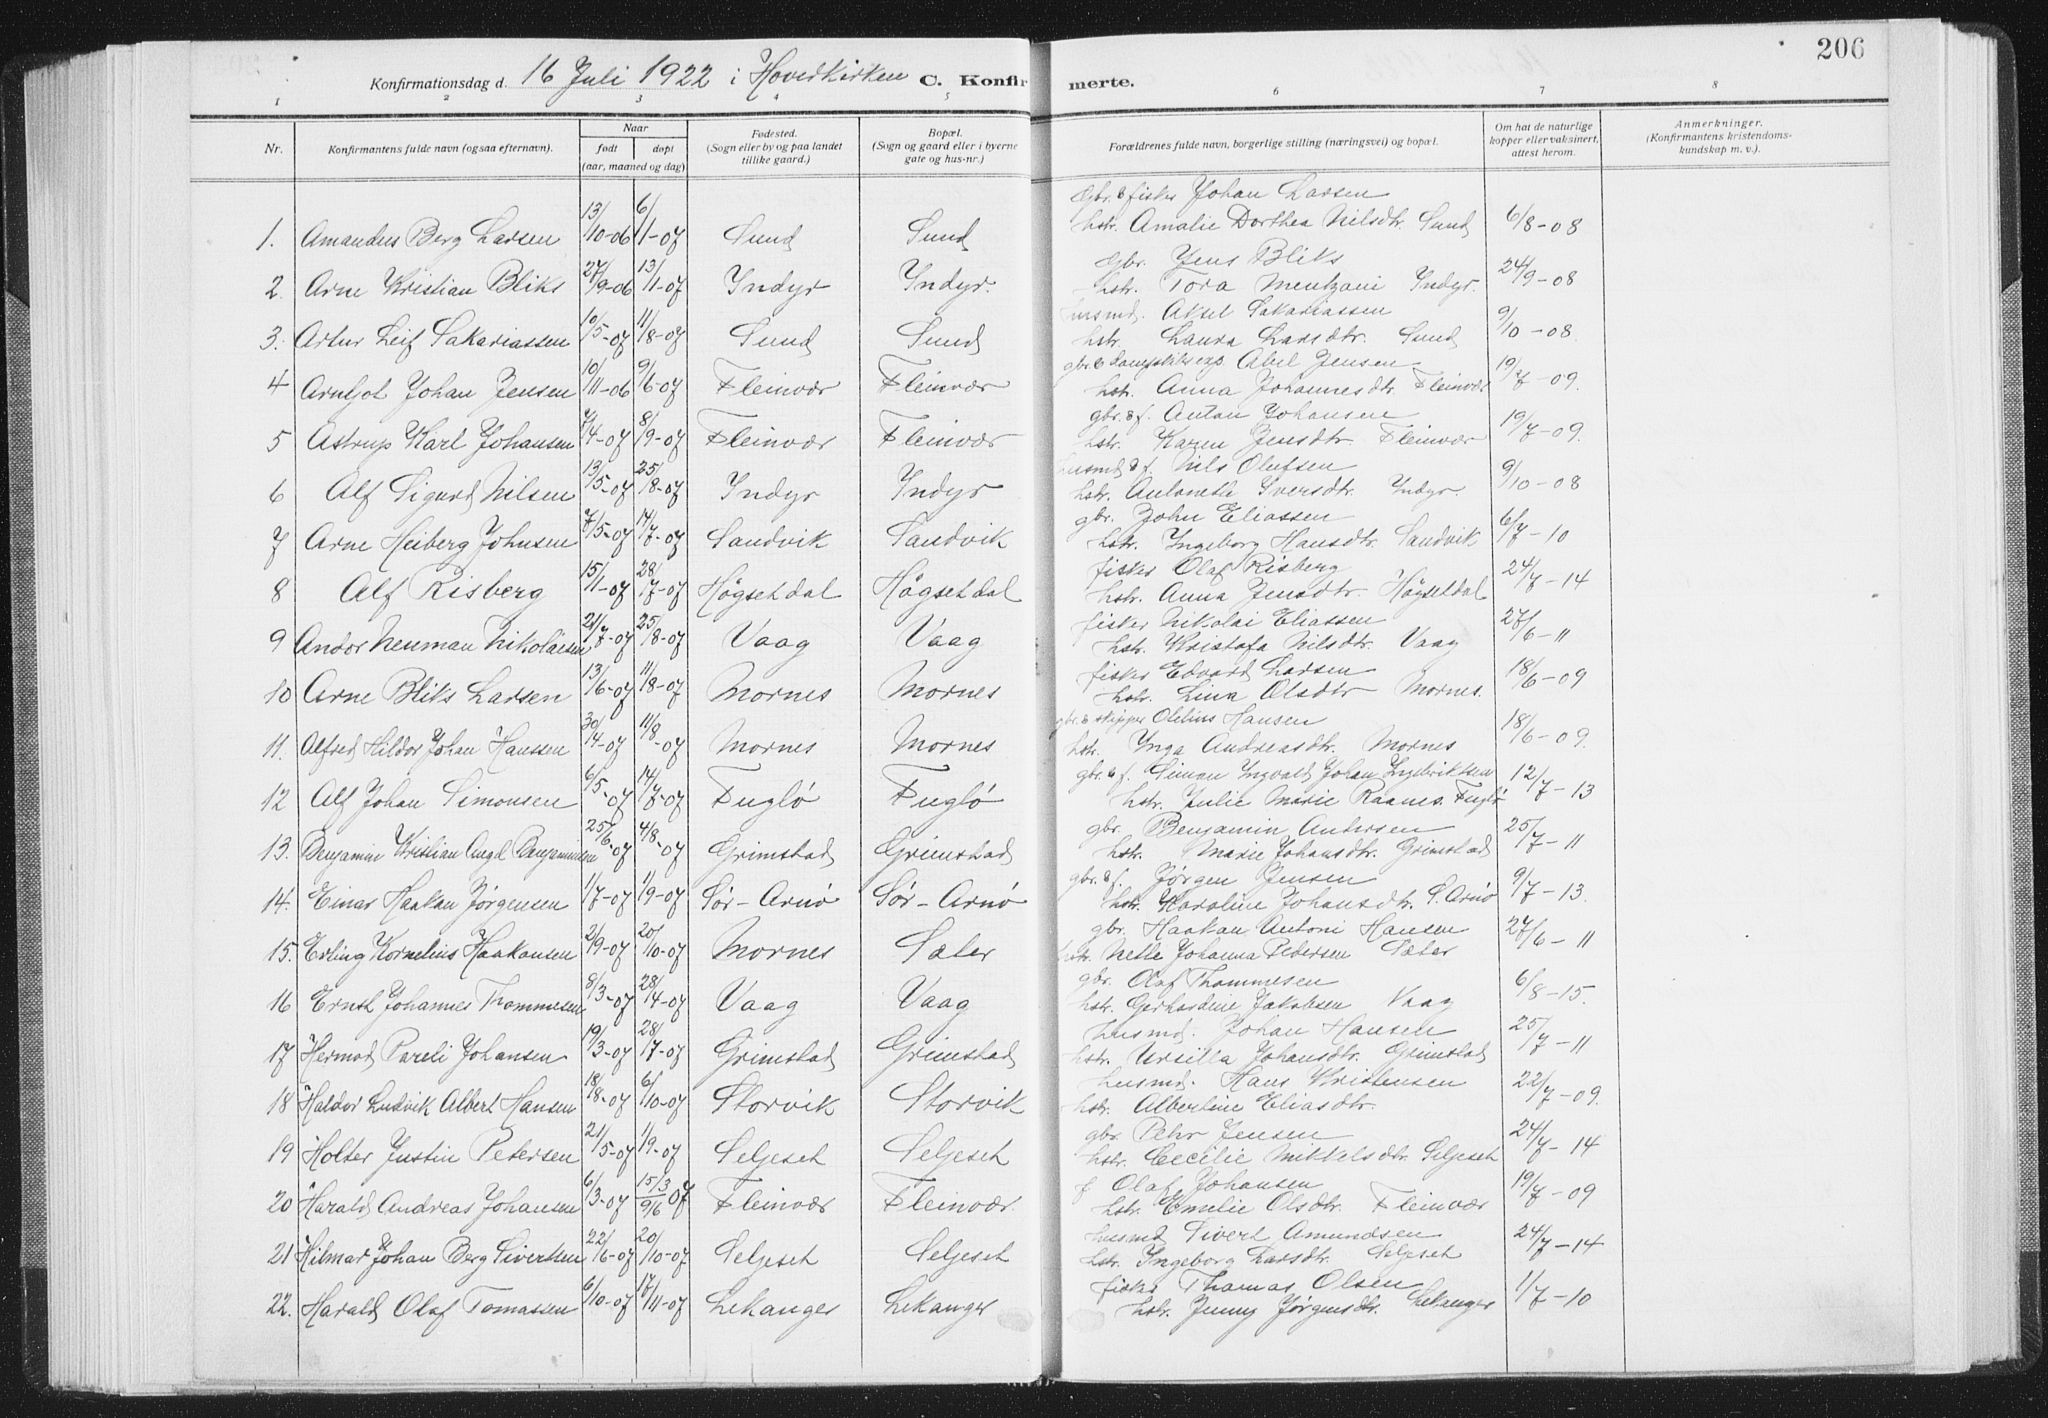 206
Konfirmationsdag d. 16 Juli 1922 i Hovedkirken C. Konfirmerte.
1 2 3 4 5 6 7 8
Nr.
Konfirmantens fulde navn (ogsaa efternavn).
Naar
født
døpt
(aar, maaned og dag)
Fødested.
(Sogn eller by og paa landet
tillike gaard.)
Bopæl.
(Sogn og gaard eller i byerne
gate og hus-nr.)
Forældrenes fulde navn, borgerlige stilling (næringsvei) og bopæl.
Om hat de naturlige
kopper eller vaksinert,
attest herom.
Anmerkninger.
(Konfirmantens kristendoms-
kundskap m. v.).
gbr. & fisker Johan Larsen
1. Amandus Berg Larsen 13/10-06 6/1-07 Sund Sund hstr. Amalie Dorthea Nilsdtr. Sund 6/8-08
gbr. Jens Bliks
2. Arne Kristian Bliks 27/9-06 13/1-07 Indyr Indyr. hstr. Tora Mentzoni Indyr. 24/9-08
husmd. Aksel Sakariassen
3. Artur Leif Sakariassen 10/5-07 11/8-07 Sund Sund hstr. Laura Larsdtr. Sund 9/10-08
gbr. & dampskibsexp. Abel Jensen
4 Arntjot Johan Jensen 10/11-06 9/6-07 Fleinvær Fleinvær hstr. Anna Johannesdtr. Fleinvær 19/7-09.
gbr. & f. Anton Johansen
5 Astrup Karl Johansen 7/4-07 8/9-07 Fleinvær Fleinvær hstr. Karen Jensdtr. Fleinvær 19/7-09.
husmd & f. Nils Olufsen
6 Alf Sigurd Nilsen 13/5-07 25/8-07 Indyr Indyr hstr. Antonette Iversdtr. Indyr. 9/10-08
gbr. John Eliassen
7 Arne Heiberg Johnsen 7/5-07 14/7-07 Sandvik Sandvik hstr. Ingeborg Hansdtr. Sandvik 6/7-10
fisker Olaf Risberg
8 Alf Risberg 15/1-07 28/7-07 Högsetdal Högsetdal hstr. Anna Jensdtr. Högsetdal 24/7-14
fisker Nikolai Eliassen
9 Andor Neuman Nikolaisen 21/7-07 25/8-07 Vaag Vaag hstr. Kristofa Nilsdtr. Vaag 27/6-11
fisker Edvard Larsen
10 Arne Bliks Larsen 13/6-07 11/8-07 Mornes Mornes hstr. Lina Olsdtr Mornes. 18/6-09
gbr. & skipper Olelius Hansen
11. Alfred Hildor Johan Hanssen 30/4-07 11/8-07 Mornes Mornes hstr. Inga Andreasdtr. Mornes 18/6-09.
gbr. & f. Simon Ingvald Johan Ingebriktsen
12 Alf Johan Simonsen 6/5-07 14/7-07 Fuglø Fuglø hstr. Julie Marie Raanes. Fuglø 12/7-13
gbr. Benjamin Andersen
13. Benjamin Kristian Angel Benjaminsen 25/6-07 4/8-07 Grimstad Grimstad hstr. Marie Johansdtr. Grimstad 25/7-11
gbr. & f. Jørgen Jensen
14. Einar Haakon Jørgensen 1/7-07 1/9-07 Sør-Arnø Sør-Arnø hstr. Karoline Johansdtr. S. Arnø 9/7-13.
gbr. Haakon Antoni Hansen
15. Erling Kornelius Haakonsen 2/9-07 20/10-07 Mornes Sæter hstr. Nelle Johanna Pedersen Sæter 27/6-11
gbr. Olaf Thommesen
16 Ernst Johannes Thommesen 8/3-07 28/4-07 Vaag Vaag hstr. Gerhardine Jakobsen Vaag 6/8-15.
husmd. Johan Hansen
17 Hermod Pareli Johansen 19/3-07 28/7-07 Grimstad Grimstad hstr. Ursilla Johansdtr. Grimstad 25/7-11
husmd. Hans Kristensen
18 Haldor Ludvik Albert Hansen 18/8-07 6/10-07 Storvik Storvik hstr. Albertine Eliasdtr. 22/7-09.
gbr. Peter Jensen
19 Holter Justin Petersen 21/5-07 1/9-07 Seljeset Seljeset hstr. Cecilie Mikkelsdtr. Seljeset 24/7-14
f Olaf Johansen
20 Harald Andreas Johansen 6/3-07 15/3 9/6 07 Fleinvær Fleinvær. hstr. Emilie Olsdtr. Fleinvær 19/7-09
husmd Sivert Amundsen
21 Hilmar Johan Berg Sivertsen 22/6-07 20/10-07 Seljeset Seljeset hstr. Ingeborg Larsdtr. Seljeset 24/7-14
fisker Thomas Olsen
22. Harald Olaf Tomassen 6/10-07 17/11-07 Lekanger Lekanger hstr. Jenny Jørgensdtr. Lekanger 1/7-10